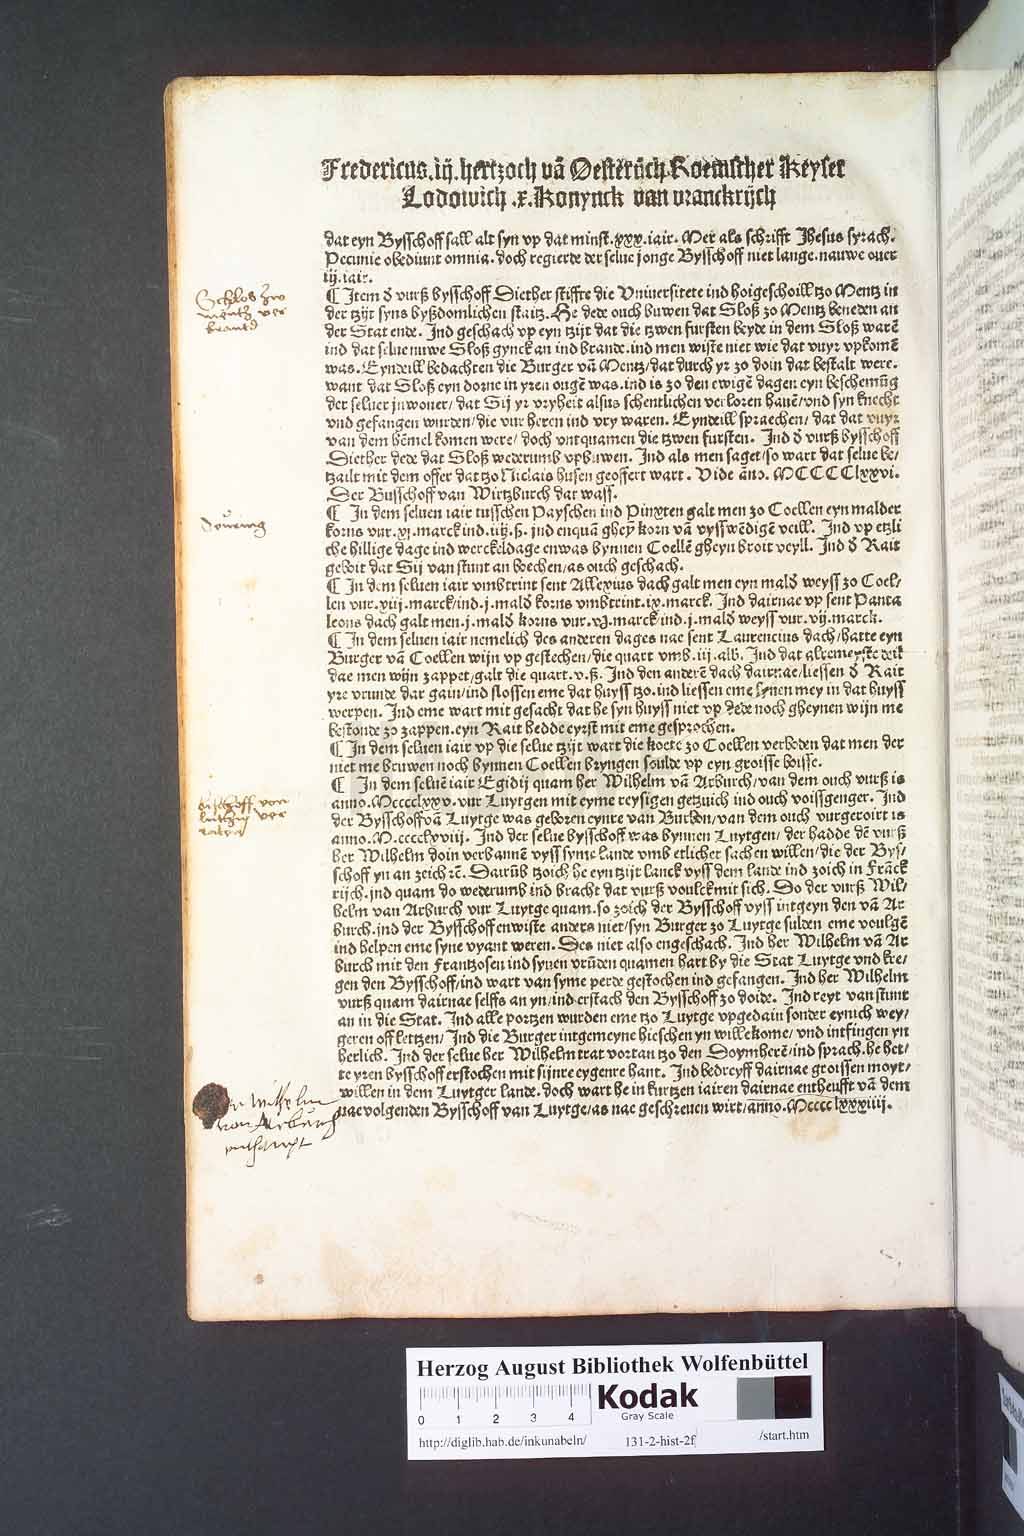 Fredericus .iij. hertzoch vā Oesterrich Roemscher Keyser
Lodowich .x. Konynck van vranckrijch
dat eyn Bysschoff sall alt syn vp dat minst .xxx. iair. Mer als schrifft Jhesus syrach.
Pecunie obediunt omnia. doch regierde der selue jonge Bysschoff niet lange. nauwe ouer
iij. iair.
¶ Item ð vurß bysschoff Diether stiffte die Vniuersitete ind hoigeschoill tzo Mentz in
der tzijt syns byßdomlichen staitz. He dede ouch buwen dat Sloß zo Mentz beneden an
der Stat ende. Ind geschach vp eyn tzijt dat die tzwen fursten beyde in dem Sloß warē
ind dat selue nuwe Sloß gynck an ind brande. ind men wiste niet wie dat vuyr vpkomē
was. Eyndeill bedachten die Burger vā Mentz/ dat durch yr zo doin dat bestalt were.
want dat Sloß eyn dorne in yren ougē was. ind is zo den ewigē dagen eyn beschemūg
der seluer jnwoner/ dat Sij yr vryheit alsus schentlichen verloren hauē/ vnd syn knecht
vnd gefangen wurden/ die vur heren ind vry waren. Eyndeill spraechen/ dat dat vuyr
van dem hēmel komen were/ doch vntquamen die tzwen fursten. Ind ð vurß bysschoff
Diether dede dat Sloß wederumb vpbuwen. Ind als men saget/ so wart dat selue be/
tzailt mit dem offer dat tzo Niclais husen geoffert wart. Vide āno. MCCCClxxvi.
Der Busschoff van Wirtzburch dat wass.
¶ In dem seluen iair tusschen Payschen ind Pinxten galt men zo Coellen eyn malder
korns vur .vj. marck ind .iiij. ß. ind enquā gheyn korn vā vysswēdigē veill. Ind vp etzli
che hillige dage ind werckeldage enwas bynnen Coellē gheyn broit veyll. Ind ð Rait
geboit dat Sij van stunt an boechen/ as ouch geschach.
¶ In dem seluen iair vmbtrint sent Allexius dach galt men eyn malð weyss zo Coel/
len vur .xiij. marck/ ind .j. malð korns vmbtrint .ix. marck. Ind dairnae vp sent Panta
leons dach galt men .j. malð korns vur .vj. marck ind .j. malð weyss vur .vij. marck.
¶ In dem seluen iair nemelich des anderen dages nae sent Laurencius dach/ hatte eyn
Burger vā Coellen wijn vp gestechen/ die quart vmb .iij. alb. Ind dat alremeyste deil
dae men wijn zappet/ galt die quart .v. ß. Ind den anderē dach dairnae/ liessen ð Rait
yre vrunde dar gain/ ind slossen eme dat huyss tzo. ind liessen eme synen mey in dat huyss
werpen. Ind eme wart mit gesacht dat he syn huyss niet vp dede noch gheynen wijn me
bestonde zo zappen. eyn Rait hedde eyrst mit eme gesprochen.
¶ In dem seluen iair vp die selue tzijt wart die koete zo Coellen verboden dat men der
niet me bruwen noch bynnen Coellen bryngen soulde vp eyn groisse boisse.
¶ In dem seluē iair Egidij quam her Wilhelm vā Arburch/ van dem ouch vurß is
anno. Mcccclxxv. vur Luytgen mit eyme reysigen getzuich ind ouch voissgenger. Ind
der Bysschoff vā Luytge was geboren eynre van Burbon/ van dem ouch vurgeroirt is
anno. M.cccclxviij. Ind der selue bysschoff was bynnen Luytgen/ der hadde dē vurß
her Wilhelm doin verbannē vyss syme lande vmb etlicher sachen willen/ die der Bys/
schoff yn an zeichēt. Dairūb tzoich he eyn tzijt lanck vyss dem lande ind zoich in Frāck
rijch. ind quam do wederumb ind bracht dat vurß voulck mit sich. Do der vurß Wil/
helm van Arburch vur Luytge quam. so zoich der Bysschoff vyss intgeyn den vā Ar
burch. ind der Bysschoff enwiste anders niet/ syn Burger zo Luytge sulden eme voulgē
ind helpen eme syne vyant weren. Des niet also engeschach. Ind her Wilhelm vā Ar
burch mit den Frantzosen ind synen vrūden quamen hart by die Stat Luytge vnd kre/
gen den Bysschoff/ ind wart van syme perde gestochen ind gefangen. Ind her Wilhelm
vurß quam dairnae selffs an yn/ ind erstach den Bysschoff zo doide. Ind reyt van stunt
an in die Stat. Ind alle portzen wurden eme tzo Luytge vpgedain sonder eynich wey/
geren off letzen/ Ind die Burger intgemeyne hieschen yn willekome/ vnd intfingen yn
herlich. Ind der selue her Wilhelm trat vortan tzo den Doymherē/ ind sprach. he het/
te yren bysschoff erstochen mit sijnre eygenre hant. Ind bedreyff dairnae groissen moyt/
willen in dem Luytger lande. doch wart he in kurtzen iairen dairnae entheufft vā dem
nae volgenden Bysschoff van Luytge/ as nae geschreuen wirt/ anno. Mcccclxxxiiij.
Schlos zw
mentz ver
brant
Deurung
Bischoff von
luttich ver
raten
Wilhelm
von Arburg
enthaupt
Herzog August Bibliothek Wolfenbüttel
0 1 2 3 4
Kodak
Gray Scale
http://diglib.hab.de/inkunabeln/ 131-2-hist-2f /start.htm